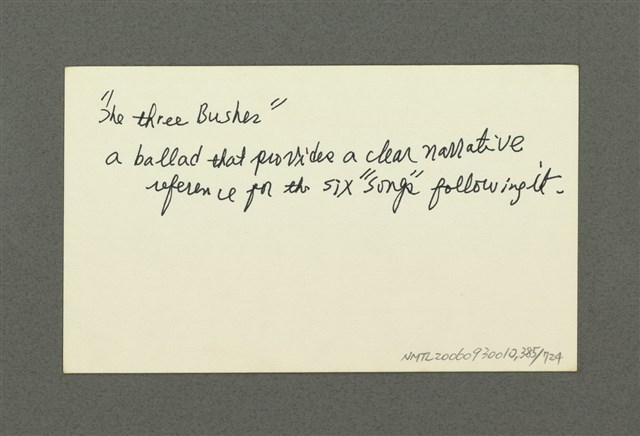 "The three Bushes"
a ballad that provides a clear narrative
reference for the six "songs" following it.
NMTL20060930010,385/724